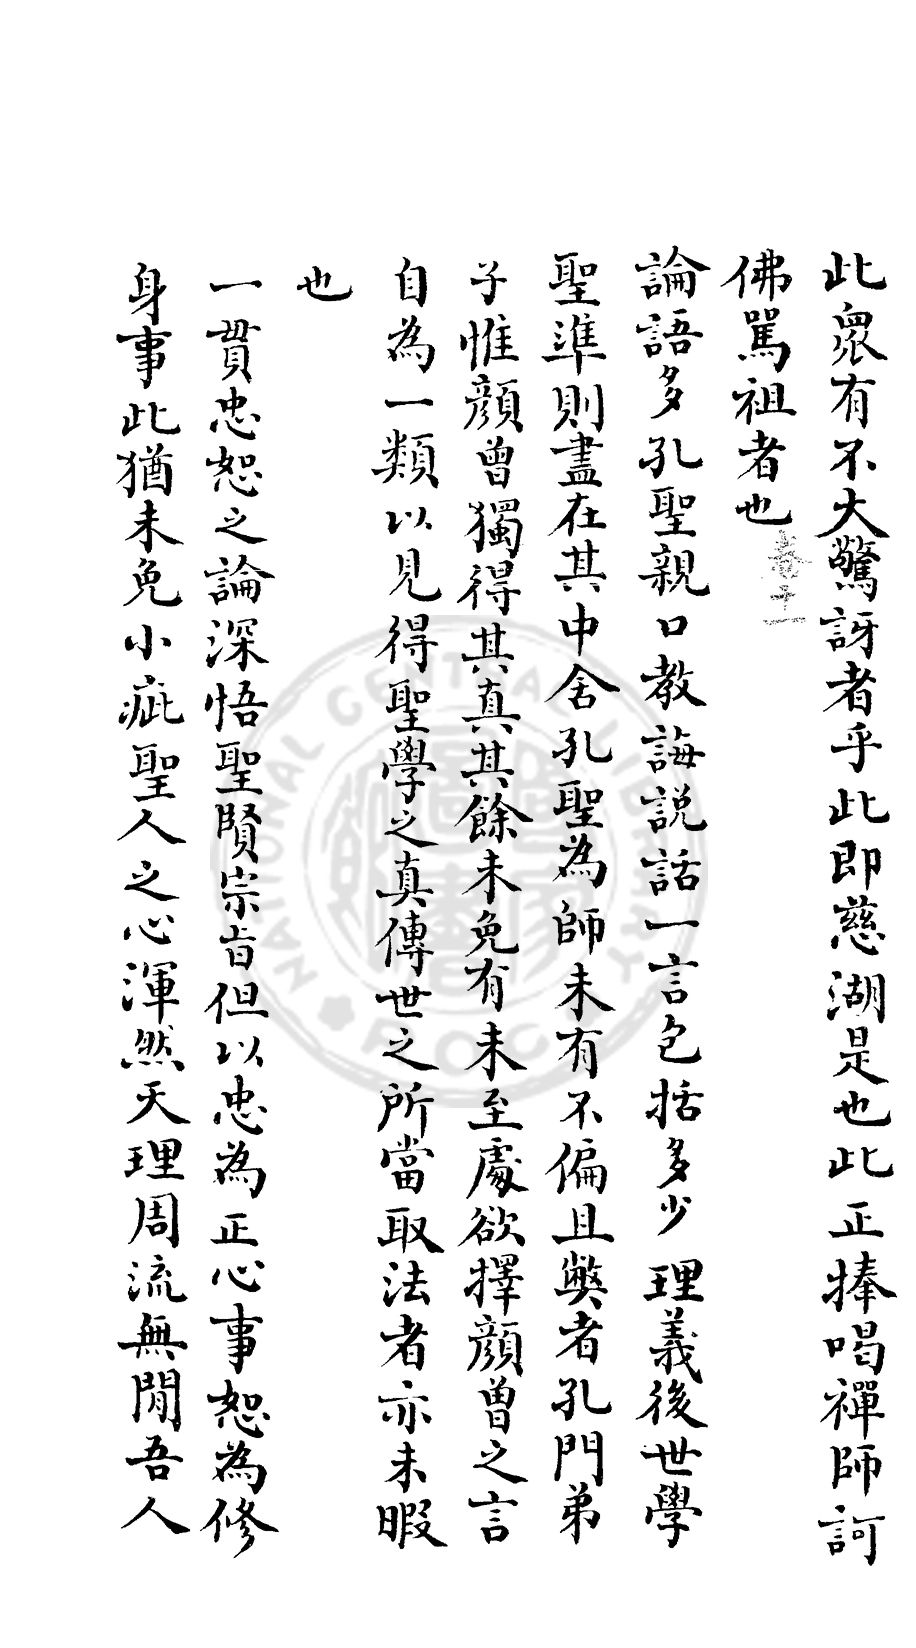 此衆有不大驚訝者乎此即慈湖是也此正捧喝禪師訶
佛駡祖者也
卷十一
論語多孔聖親口教誨説話一言包括多少理義後世學
聖準則盡在其中舍孔聖為師未有不偏且獘者孔門弟
子惟顔曾獨得其真其餘未免有未至處欲擇顔曾之言
自為一類以見得聖學之真傳世之所當取法者亦未暇
也
一貫忠恕之論深悟聖賢宗旨但以忠為正心事恕為修
身事此猶未免小疵聖人之心渾然天理周流無間吾人
NATIONAL CENTRAL LIBRARY
ROC